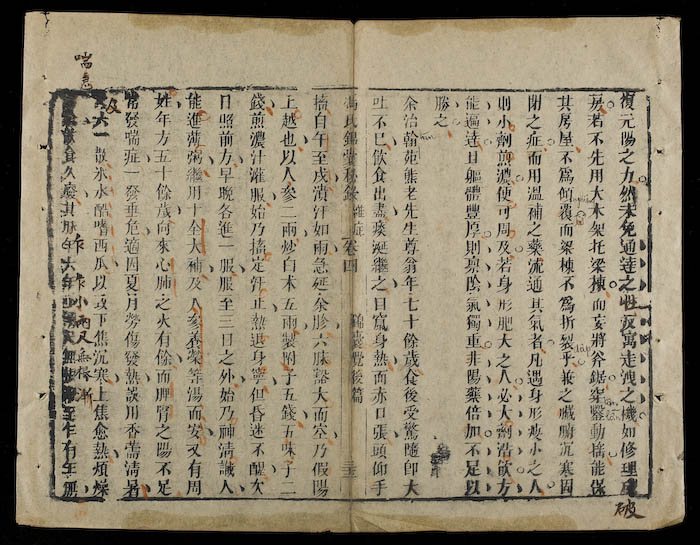 復元陽之力然未免通達之性反寓走洩之機如修理房
房若不先用大木架托梁棟而妄將斧鋸穿鑿動搖能保
其房屋不為傾覆而梁棟不為折裂乎兼之臟腑沉寒固
閉之症而用溫補之藥流通其氣者凡遇身形瘦小之人
則小劑煎濃便可周及若身形肥大之人必大劑浩飲方
能遍達且軀體豐厚則稟陰氣獨重非陽藥倍加不足以
勝之
余治翰苑熊老先生尊翁年七十餘歲食後受驚隨卽大
吐不已飲食出盡痰涎繼之日竄身熱而赤口張頭仰手
馮氏錦囊秘錄 雜症 卷四 錦囊覺後篇 三
搐自午至戌漬汗如雨急延余胗六脉豁大而空乃假陽
上越也以人參二兩炒白朮五兩製附子五錢五味子二
錢煎濃汁灌服始乃搐定汗止熱退身寧但昏迷不醒次
日照前方早晩各進一服服至三日之外始乃神清識人
能進薄粥繼用十全大補及人參養榮等湯而安又有周
姓年方五十餘歲向來心肺之火有餘而脾腎之陽不足
常發喘症一發垂危適因夏月勞傷發熱誤用香薷清暑
六一散氷水酷嗜西瓜以致下焦沉寒上焦愈熱煩燥
食久廢其脉
喘急
及
破